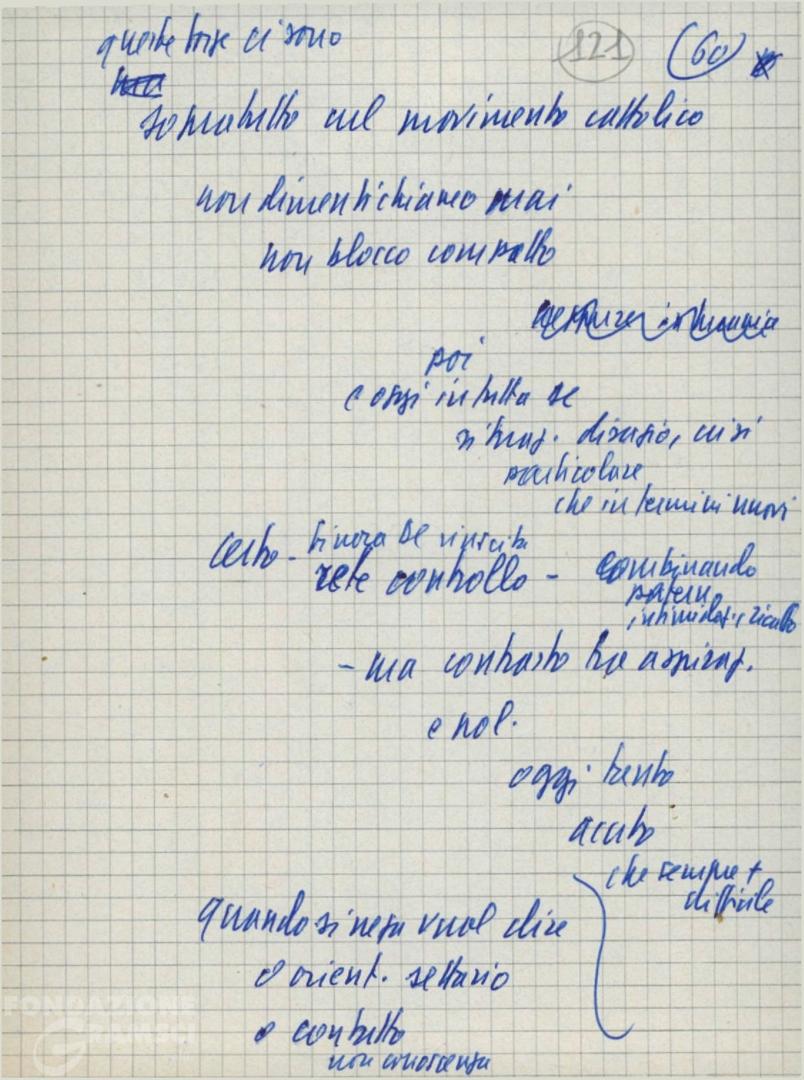 121 (60)
queste forze ci sono
soprattutto nel movimento cattolico
non dimentichiamo mai
non blocco compatto
poi
e oggi in tutta se
situaz. disagio, crisi
particolare
che in termini nuovi
certo - finora DC riuscita
rete controllo - combinando
patern.
intimidaz. ricatto
- ma contrasto tra aspiraz.
e pol.
oggi tanto
acuto
che sempre +
difficile
quando si nega vuol dire
o orient. settario
o contatto
non conoscenza
FONDAZIONE
GRAMSCI